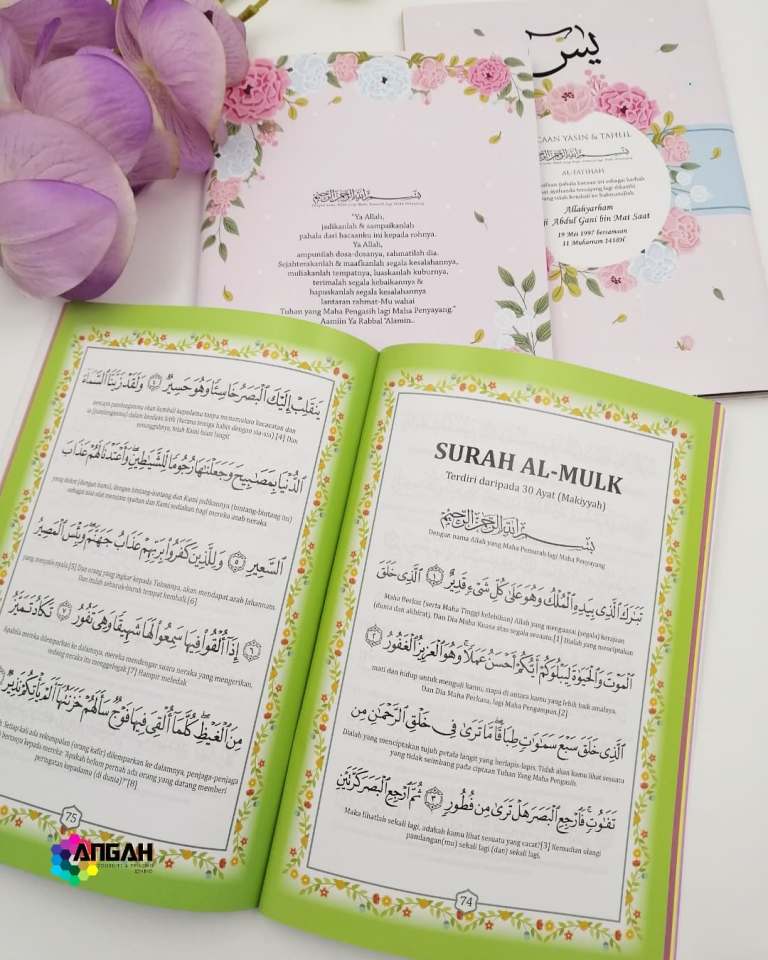 يس
CAAN YASIN & TAHLIL
بسم الله الرحمن الرحيم
AL-FATIHAH
Allahyarham
ji Abdul Gani bin Mat Saat
19 Mei 1997 bersamaan
11 Muharam 1418H
بسم الله الرحمن الرحيم
"Ya Allah,
jadikanlah & sampaikanlah
pahala dari bacaanku ini kepada rohnya.
Ya Allah,
ampunilah dosa-dosanya, rahmatilah dia.
Sejahterakanlah & maafkanlah segala kesalahannya,
muliakanlah tempatnya, luaskanlah kuburnya,
terimalah segala kebaikannya &
hapuskanlah segala kesalahannya
lantaran rahmat-Mu wahai
Tuhan yang Maha Pengasih lagi Maha Penyayang."
Aamiin Ya Rabbal 'Alamin..
SURAH AL-MULK
Terdiri daripada 30 Ayat (Makiyyah)
بِسْمِ اللَّهِ الرَّحْمَٰنِ الرَّحِيمِ
Dengan nama Allah yang Maha Pemurah lagi Maha Penyayang
تَبَارَكَ الَّذِي بِيَدِهِ الْمُلْكُ وَهُوَ عَلَىٰ كُلِّ شَيْءٍ قَدِيرٌ ١ الَّذِي خَلَقَ
Maha Berkat (serta Maha Tinggi kelebihan) Allah yang menguasai (segala) kerajaan
(dunia dan akhirat). Dan Dia Maha Kuasa atas segala sesuatu.[1] Dialah yang menciptakan
الْمَوْتَ وَالْحَيَاةَ لِيَبْلُوَكُمْ أَيُّكُمْ أَحْسَنُ عَمَلًا وَهُوَ الْعَزِيزُ الْغَفُورُ ٢
mati dan hidup untuk menguji kamu, siapa di antara kamu yang lebih baik amalnya.
Dan Dia Maha Perkasa, lagi Maha Pengampun.[2]
الَّذِي خَلَقَ سَبْعَ سَمَاوَاتٍ طِبَاقًا مَّا تَرَىٰ فِي خَلْقِ الرَّحْمَٰنِ مِن
Dialah yang menciptakan tujuh petala langit yang berlapis-lapis. Tidak akan kamu lihat sesuatu
yang tidak seimbang pada ciptaan Tuhan Yang Maha Pengasih.
تَفَاوُتٍ فَارْجِعِ الْبَصَرَ هَلْ تَرَىٰ مِن فُطُورٍ ٣ ثُمَّ ارْجِعِ الْبَصَرَ كَرَّتَيْنِ
Maka lihatlah sekali lagi, adakah kamu lihat sesuatu yang cacat?[3] Kemudian ulangi
pandangan(mu) sekali lagi (dan) sekali lagi,
74
يَنقَلِبْ إِلَيْكَ الْبَصَرُ خَاسِئًا وَهُوَ حَسِيرٌ ٤ وَلَقَدْ زَيَّنَّا السَّمَاءَ
الدُّنْيَا بِمَصَابِيحَ وَجَعَلْنَاهَا رُجُومًا لِّلشَّيَاطِينِ وَأَعْتَدْنَا لَهُمْ عَذَابَ
yang dekat (dengan kamu), dengan bintang-bintang dan Kami jadikannya (bintang-bintang itu)
السَّعِيرِ ٥ وَلِلَّذِينَ كَفَرُوا بِرَبِّهِمْ عَذَابُ جَهَنَّمَ وَبِئْسَ الْمَصِيرُ
yang menyala-nyala.[5] Dan orang yang ingkar kepada Tuhannya, akan mendapat azab Jahannam.
Dan itulah seburuk-buruk tempat kembali.[6]
٦ إِذَا أُلْقُوا فِيهَا سَمِعُوا لَهَا شَهِيقًا وَهِيَ تَفُورُ ٧ تَكَادُ تَمَيَّزُ
Apabila mereka dilemparkan ke dalamnya, mereka mendengar suara neraka yang mengerikan,
sedang neraka itu menggelegak[7] Hampir meledak
مِنَ الْغَيْظِ كُلَّمَا أُلْقِيَ فِيهَا فَوْجٌ سَأَلَهُمْ خَزَنَتُهَا أَلَمْ يَأْتِكُمْ نَذِيرٌ
Setiap kali ada sekumpulan (orang kafir) dilemparkan ke dalamnya, penjaga-penjaga
bertanya kepada mereka "Apakah belum pernah ada orang yang datang memberi
peringatan kepadamu (di dunia)?"[8]
75
ANGAH